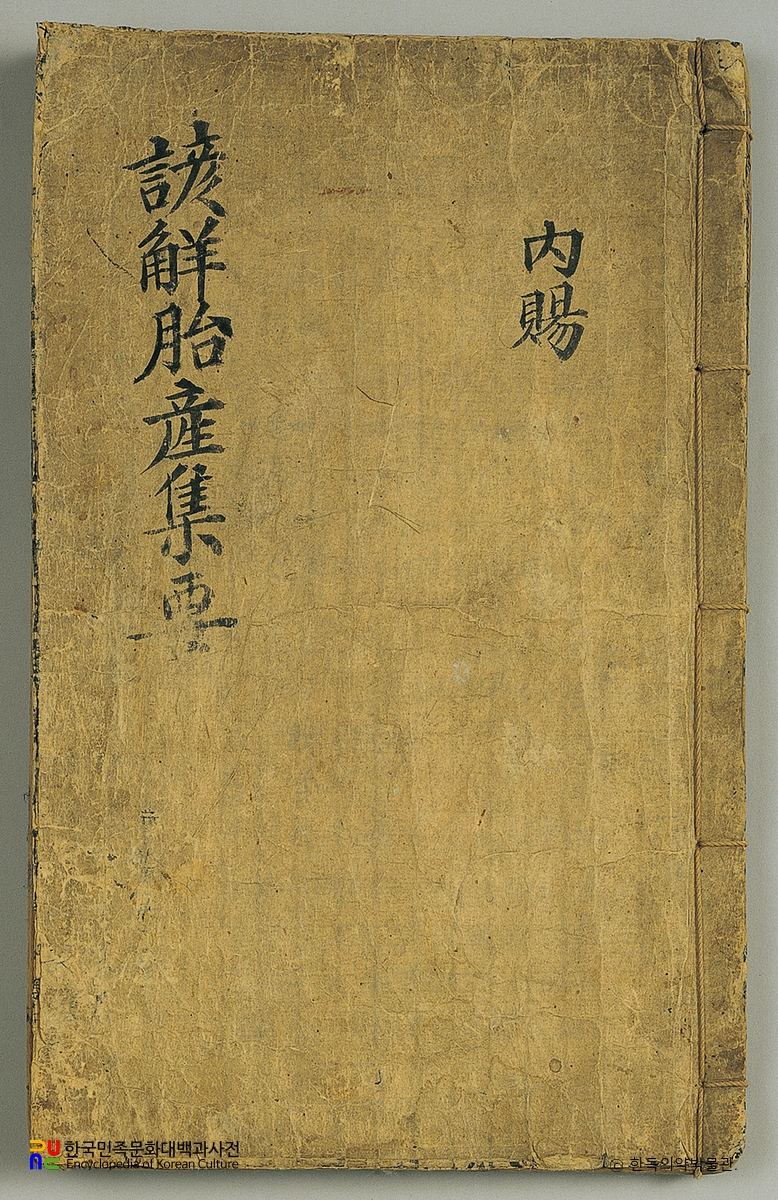 內賜
諺觧胎産集要
한국민족문화대백과사전
Encyclopedia of Korean Culture
© 한독의약박물관